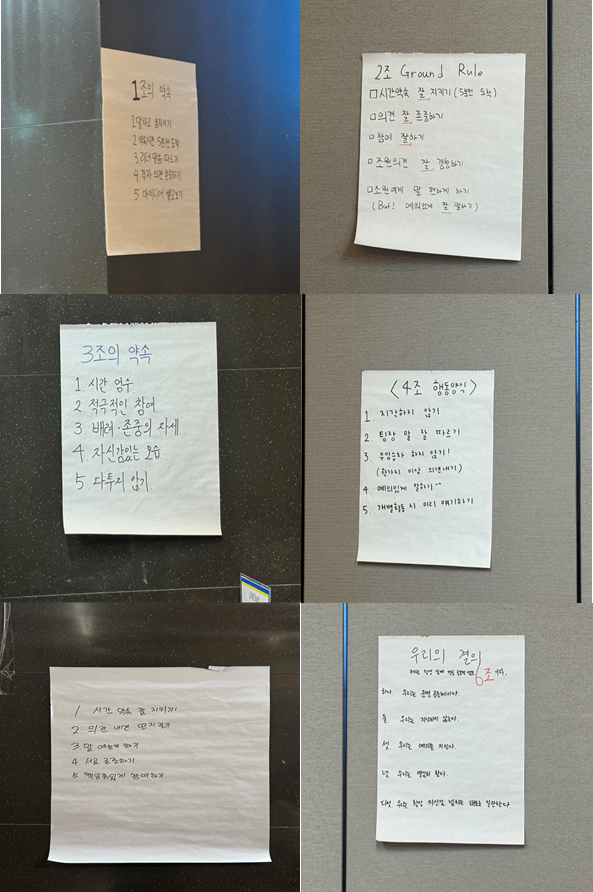 1조의 약속
1 말하고 움직이기
2 약속시간 5분전 도착
3 리더 말씀 따르기
4 각자 의견 존중하기
5 아이디어 별로보기
2조 Ground Rule
□시간약속 잘 지키기 (5분전 도착)
□의견 잘 존중하기
□참여 잘하기
□조원의견 잘 경청하기
□조원에게 말 편하게 하기
(But! 예의있게 잘 말하기)
3조의 약속
1. 시간 엄수
2. 적극적인 참여
3. 배려·존중의 자세
4. 자신감있는 모습
5. 다투지 않기
<4조 행동양식>
1. 지각하지 않기
2 팀장 말 잘 따르기
3 무임승차 하지 않기!
(한가지 이상 의견내기)
4 예의있게 말하기^^
5. 개별활동 시 미리 얘기하기
1 시간 약속 잘 지키기!
2 의견 내면 딴지걸기
3. 말 예쁘게 하기
4. 서로 존중하기
5 책임감있게 참여하기
우리의 결의
6조
하나 우리는 운명 공동체이다.
둘 우리는 지각하지 않는다.
셋 우리는 예의를 지킨다.
넷 우리는 열심히 한다.
다섯 우리는 항상 자신감 넘치는 태도로 일관한다.